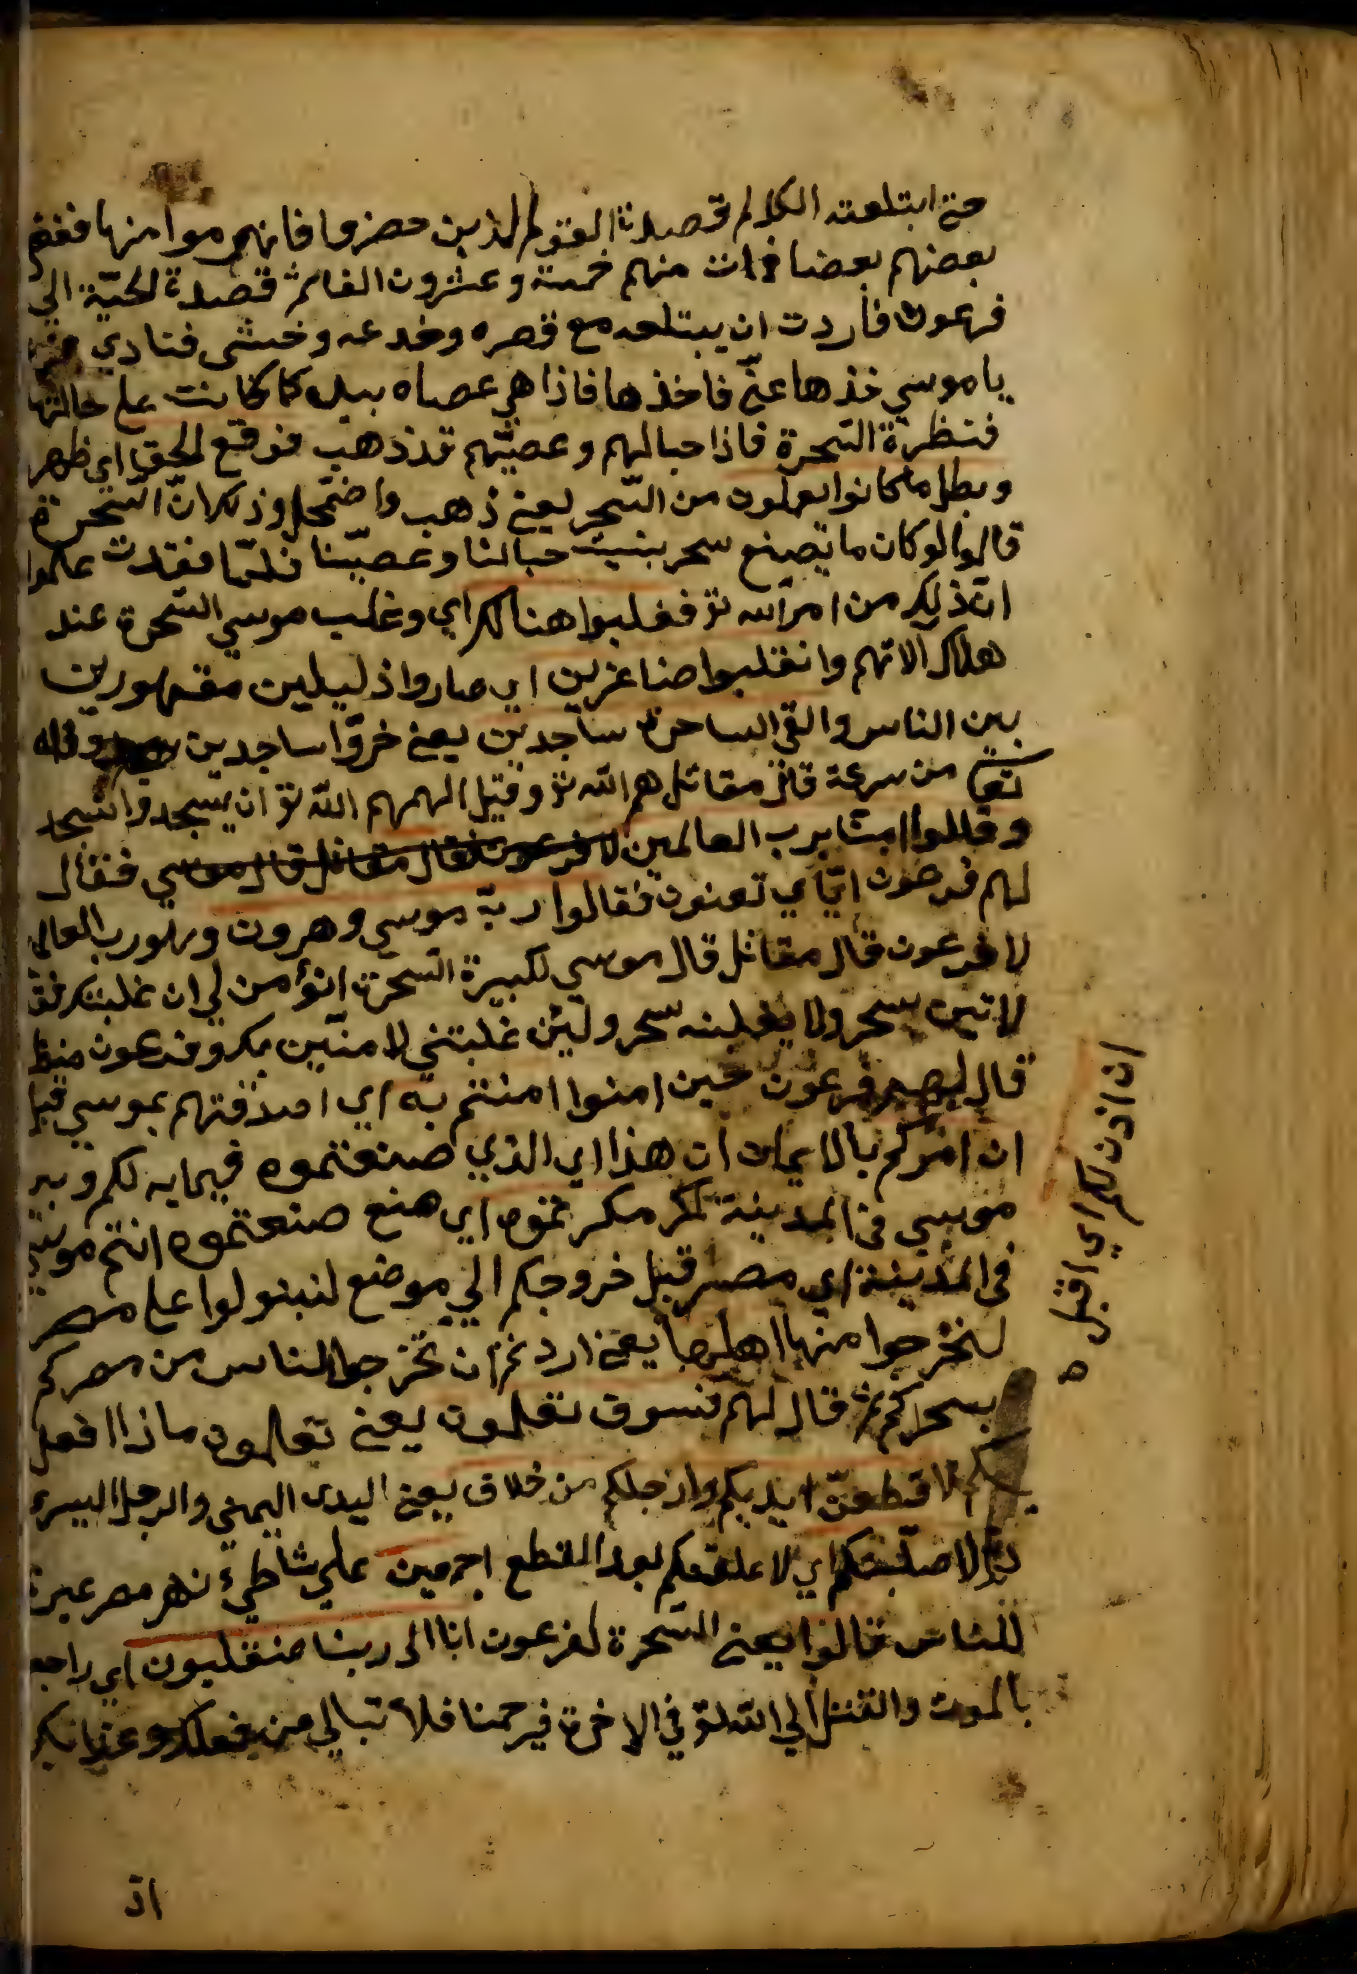 حتي ابتلعت الكل ثم قصدت القوم الذين حضروا فانهزموا منها فغم
بعضهم بعضا فمات منهم خمسة وعشرون الفا ثم قصدة الحيّة الي
فرعون فأردت ان يبتلعه مع قصره وخدعه وخشي فنادي
يا موسي خذها عنّي فاخذها فاذا هي عصاه بيده كما كانت علي حالتها
فنظرة السّحرة فاذا حبالهم وعصيّهم قد ذهب فوقع الحق اي ظهر
وبطل ما كانوا يعملون من السّحر يعني ذهب واضمّحل وذلك انّ السّحرة
قالوا لو كان ما يصنع سحر بنيت حبالنا وعصيّنا فلمّا فقدت علموا
انّ ذلك من امر الله تع فغلبوا هنالك اي وغلب موسي السّحرة عند
هلاك الاتهم وانقلبوا صاغرين اي صاروا ذليلين مقهورين
بين الناس والقي الساحرة ساجدين يعني خرّوا ساجدين وقاله
من سرعة قال مقاتل هم الله تع وقيل الهمهم الله تع ان يسجدوا فسجد
وقالوا امنّا برب العالمين لا فرعون فقال مقاتل قال موسي فقال
لهم فرعون ايّاي تعنون فقالوا ربّ موسي وهرون وهو رب العالمي
لا فرعون قال مقاتل قال موسي لكبيرة السّحرة اتؤمن لي ان غلبتك فق
لاتين بسحر ولا يغلبنه سحر ولئن غلبتني لامننّ بك وفرعون ينظ
قال لهم فرعون حين امنوا امنتم به اي اصدقتهم بموسي قبل
ان امركم بالايمان ان هذا اي الذي صنعتموه فيما به لكم وبين
موسي في المدينة لمكر مكرتموه اي صنع صنعتموه انتم وموسي
في المدينة اي مصر قبل خروجكم الي موضع لتبتولوا علي مصر
لتخرجوا منها اهلها يعني اردتم ان تخرجوا الناس من مصركم
بسحركم ثم قال لهم فسوف تعلمون يعني تعلمون ماذا افعل
بكم لاقطعنّ ايديكم وارجلكم من خلاف يعني اليد اليمني والرجل اليسرء
ثمّ لاصلّبنّكم اي لاعلقنكم بعد القطع اجمعين علي شاطيء نهر مصر عبرة
للناس قالوا يعني السّحرة لفرعون انا الي ربنا منقلبون اي راجعو
بالموت والقتل الي الله تع في الاخرة فيرحمنا فلا تبالي من فعلك وعذابك
ان اذن لكم اي اقبل ه